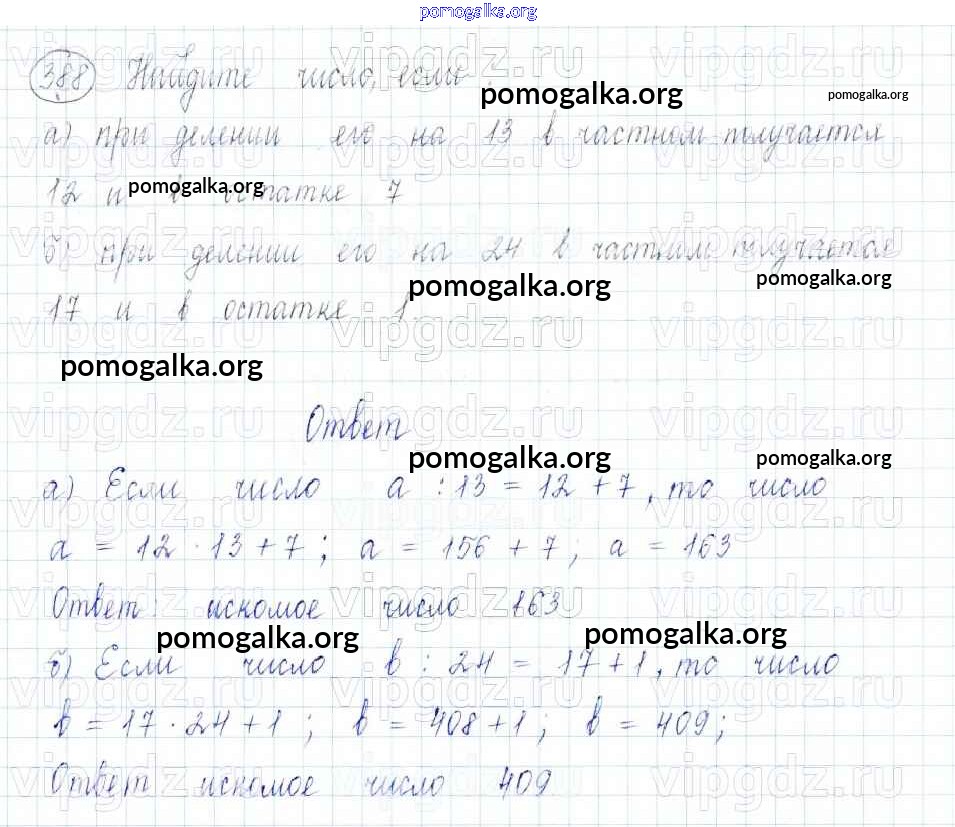 pomogalka.org
388 Найдите число, если
pomogalka.org pomogalka.org
а) при делении его на 13 в частном получается
12 и в остатке 7
pomogalka.org
б) при делении его на 24 в частном получается
pomogalka.org pomogalka.org
17 и в остатке 1.
pomogalka.org
Ответ
pomogalka.org pomogalka.org
а) Если число a : 13 = 12 + 7, то число
a = 12 · 13 + 7; a = 156 + 7; a = 163
Ответ: искомое число 163
pomogalka.org pomogalka.org
б) Если число b : 24 = 17 + 1, то число
b = 17 · 24 + 1; b = 408 + 1; b = 409;
Ответ искомое число 409
vipgdz.ru vipgdz.ru vipgdz.ru